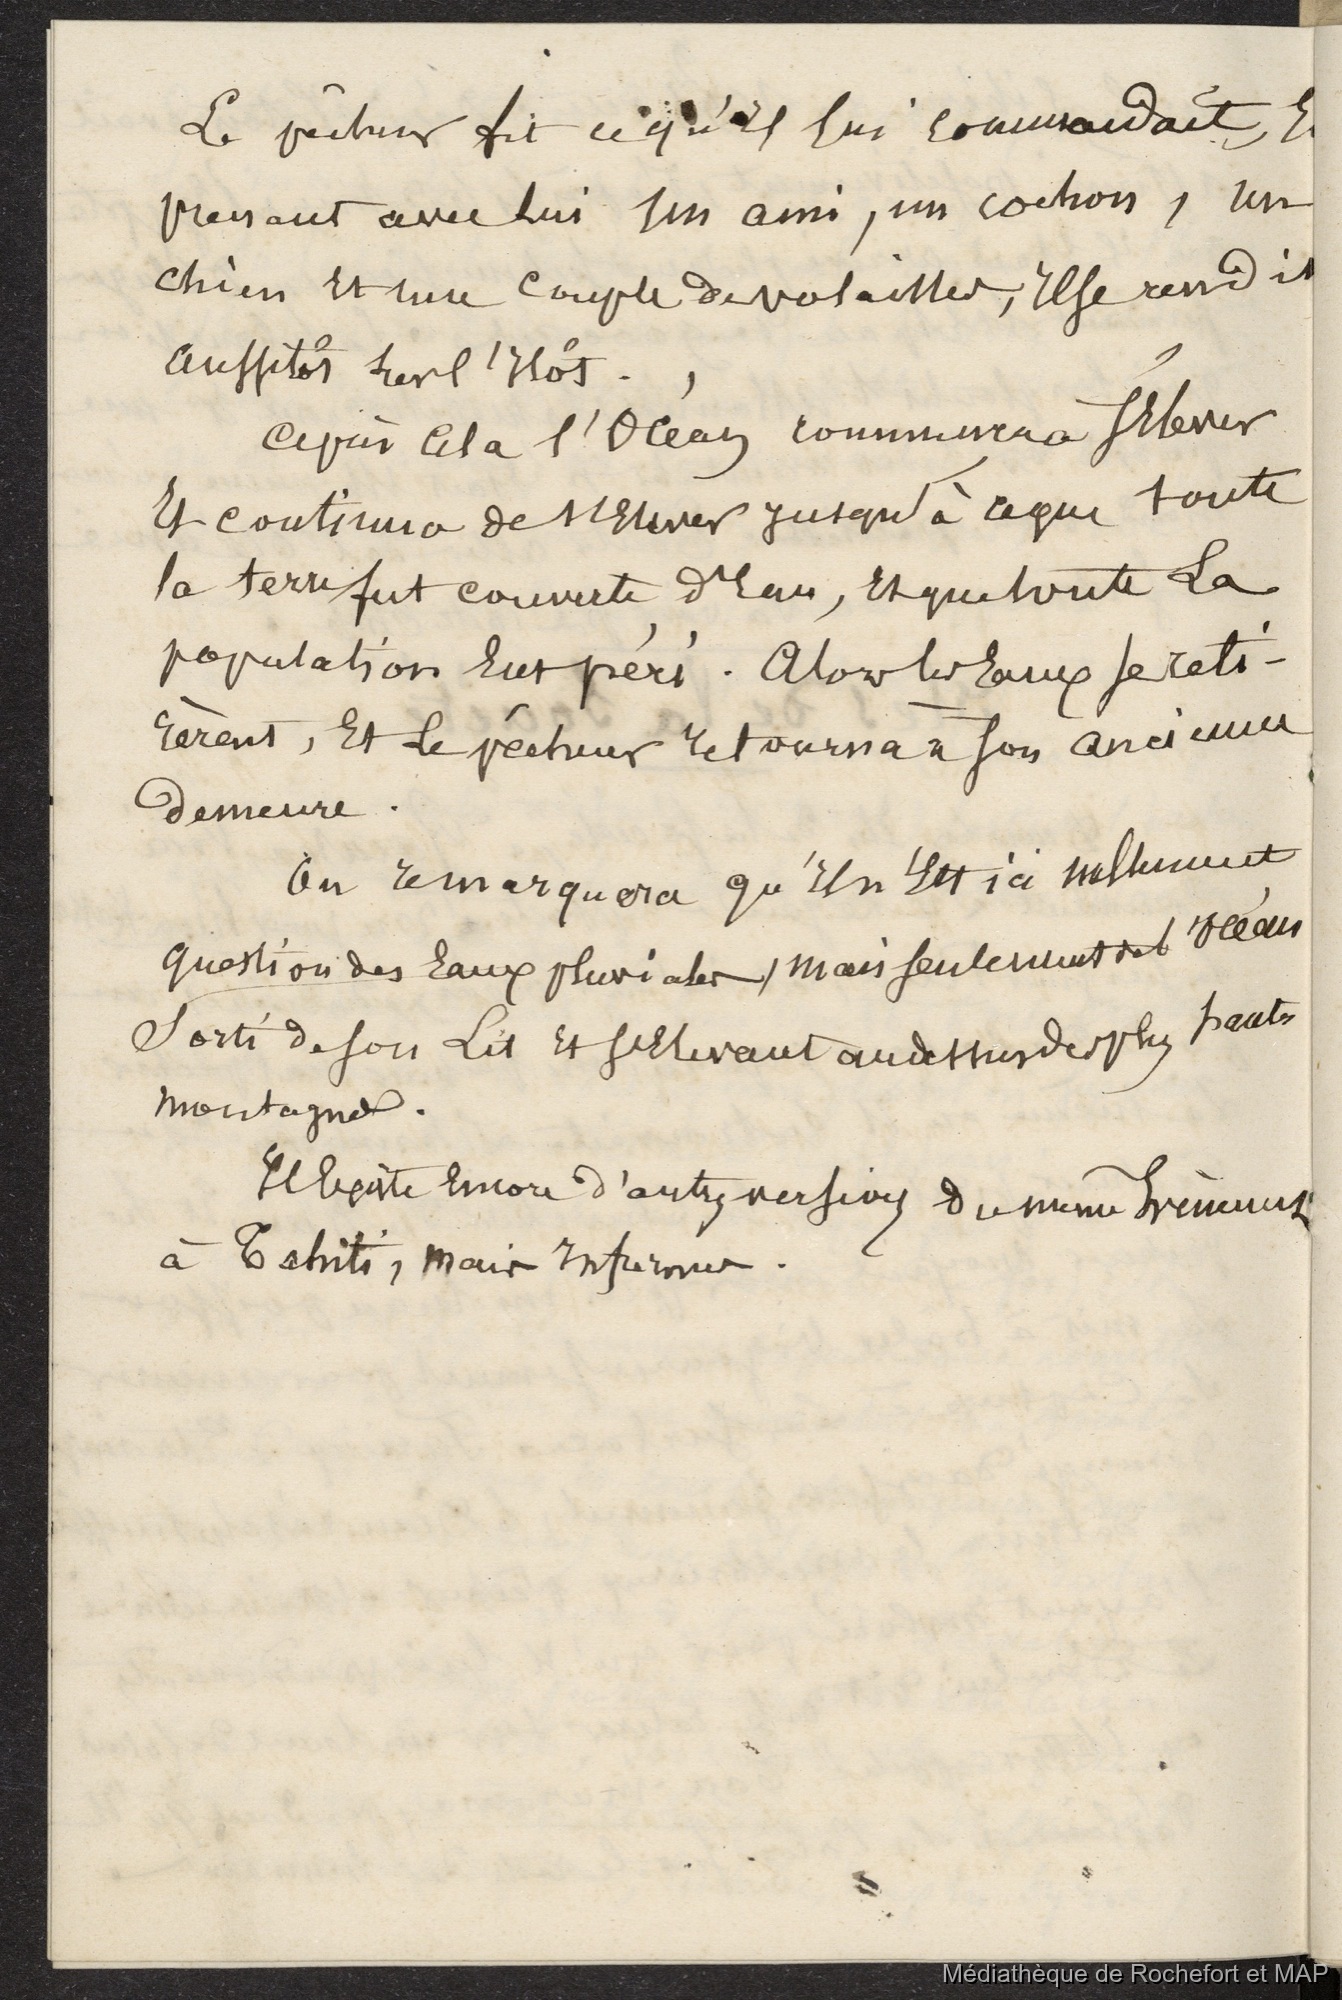 Le pêcheur fit ce qu'il lui commandait, Et
prenant avec lui un ami, un cochon, un
chien Et une couple de volailles, Il se rendit
aussitôt sur l'Ilôt.
cela l'Océan commença à s'Elever
Et continua de s'Elever jusqu'à ce que toute
la terre fut couverte d'Eau, Et que toute La
population Eut péri. Alors les Eaux se reti-
rèrent, Et Le pêcheur retourna à son ancienne
demeure.
On remarquera qu'Il n'Est ici nullement
question des Eaux pluviales, mais seulement de l'Océan
Sorti de son Lit Et s'Elevant au dessus des plus hautes
montagnes.
Il Existe Encore d'autres versions du même Evènement
à Tahiti, mais